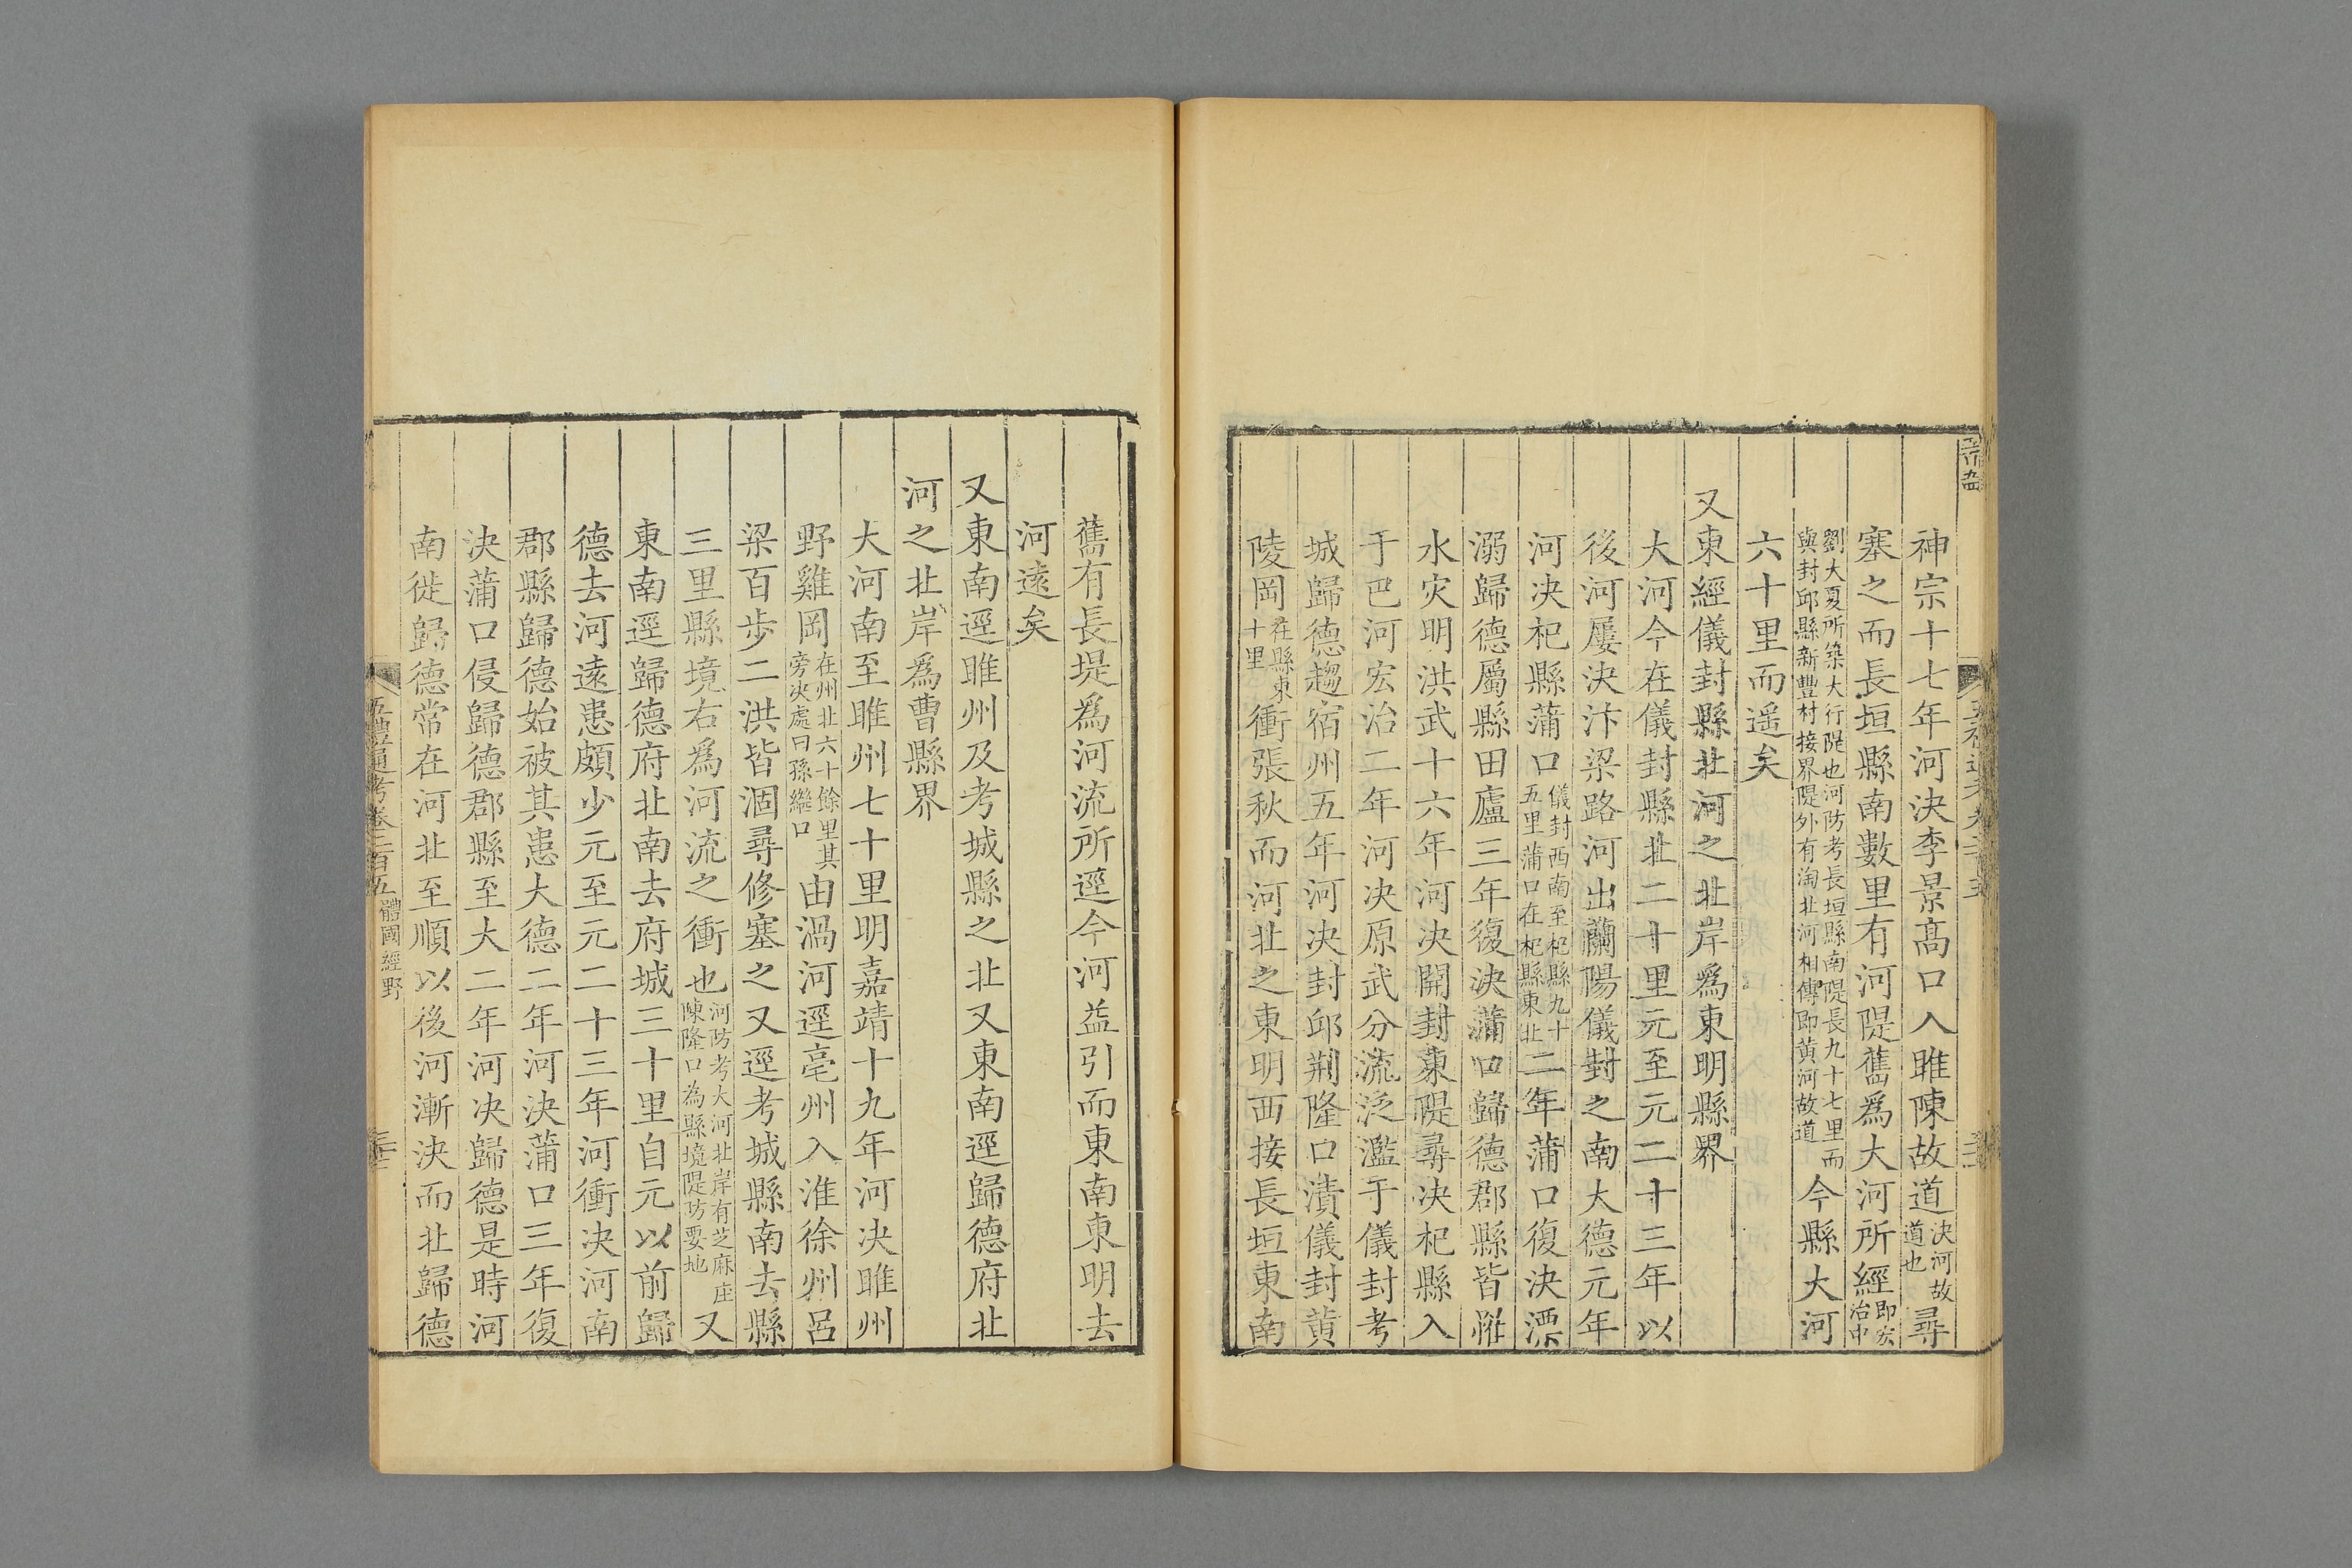 神宗十七年河決李景高口入睢陳故道決河故道也尋
塞之而長垣縣南數里有河隄舊爲大河所經即宏治中
劉大夏所築大行隄也河防考長垣縣南隄長九十七里而與封邱縣新豐村接界隄外有淘北河相傳即黃河故道今縣大河
六十里而遥矣
又東經儀封縣北河之北岸爲東明縣界
大河今在儀封縣北二十里元至元二十三年以
後河屢決汴梁路河出蘭陽儀封之南大德元年
河決杞縣蒲口儀封西南至杞縣九十五里蒲口在杞縣東北二年蒲口復決漂
溺歸德屬縣田廬三年復決蒲口歸德郡縣皆罹
水灾明洪武十六年河決開封東隄尋決杞縣入
于巴河宏治二年河決原武分流泛濫于儀封考
城歸德趨宿州五年河決封邱荆隆口潰儀封黄
陵岡在縣東十里衝張秋而河北之東明西接長垣東南
舊有長堤爲河流所逕今河益引而東南東明去
河遠矣
又東南逕睢州及考城縣之北又東南逕歸德府北
河之北岸爲曹縣界
大河南至睢州七十里明嘉靖十九年河決睢州
野雞岡在州北六十餘里其旁決處曰孫繼口由渦河逕亳州入淮徐州呂
梁百步二洪皆涸尋修塞之又逕考城縣南去縣
三里縣境右爲河流之衝也河防考大河北岸有芝麻庄陳隆口為縣境隄防要地又
東南逕歸德府北南去府城三十里自元以前歸
德去河遠患頗少元至元二十三年河衝決河南
郡縣歸德始被其患大德二年河決蒲口三年復
決蒲口侵歸德郡縣至大二年河決歸德是時河
南徙歸德常在河北至順以後河漸決而北歸德
五禮通考卷二百五 體國經野